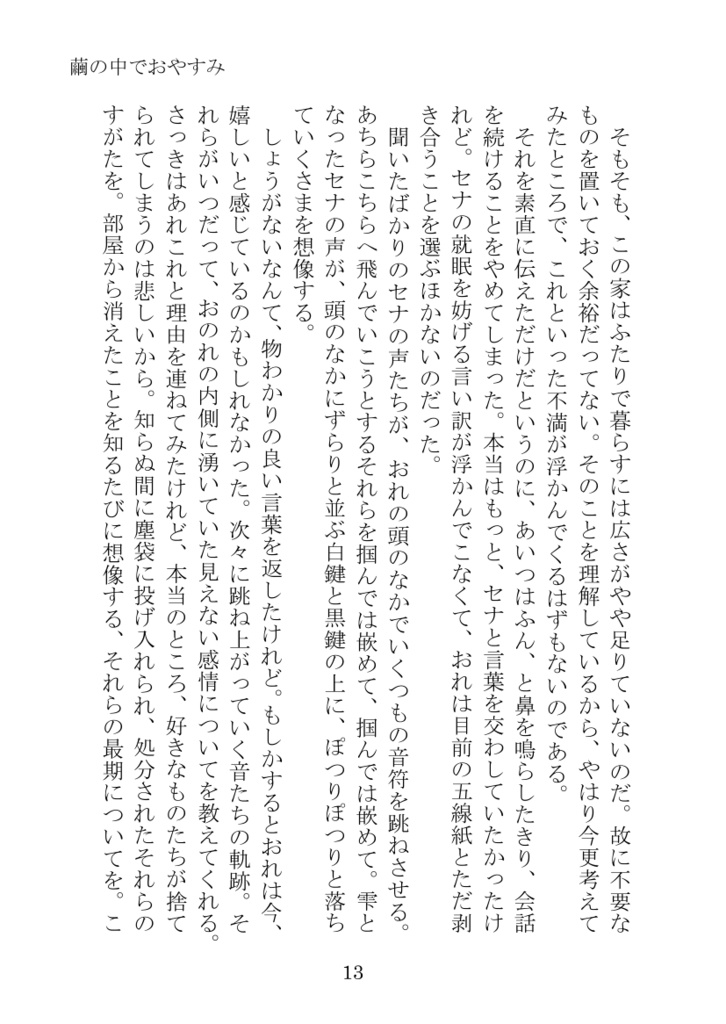 繭の中でおやすみ
そもそも、この家はふたりで暮らすには広さがやや足りていないのだ。故に不要な
ものを置いておく余裕だってない。そのことを理解しているから、やはり今更考えて
みたところで、これといった不満が浮かんでくるはずもないのである。
それを素直に伝えただけだというのに、あいつはふん、と鼻を鳴らしたきり、会話
を続けることをやめてしまった。本当はもっと、セナと言葉を交わしていたかったけ
れど。セナの就眠を妨げる言い訳が浮かんでこなくて、おれは目前の五線紙とただ剥
き合うことを選ぶほかないのだった。
聞いたばかりのセナの声たちが、おれの頭のなかでいくつもの音符を跳ねさせる。
あちらこちらへ飛んでいこうとするそれらを掴んでは嵌めて、掴んでは嵌めて。雫と
なったセナの声が、頭のなかにずらりと並ぶ白鍵と黒鍵の上に、ぽつりぽつりと落ち
ていくさまを想像する。
しょうがないなんて、物わかりの良い言葉を返したけれど。もしかするとおれは今、
嬉しいと感じているのかもしれなかった。次々に跳ね上がっていく音たちの軌跡。そ
れらがいつだって、おのれの内側に湧いていた見えない感情についてを教えてくれる。
さっきはあれこれと理由を連ねてみたけれど、本当のところ、好きなものたちが捨て
られてしまうのは悲しいから。知らぬ間に塵袋に投げ入れられ、処分されたそれらの
すがたを。部屋から消えたことを知るたびに想像する、それらの最期についてを。こ
13